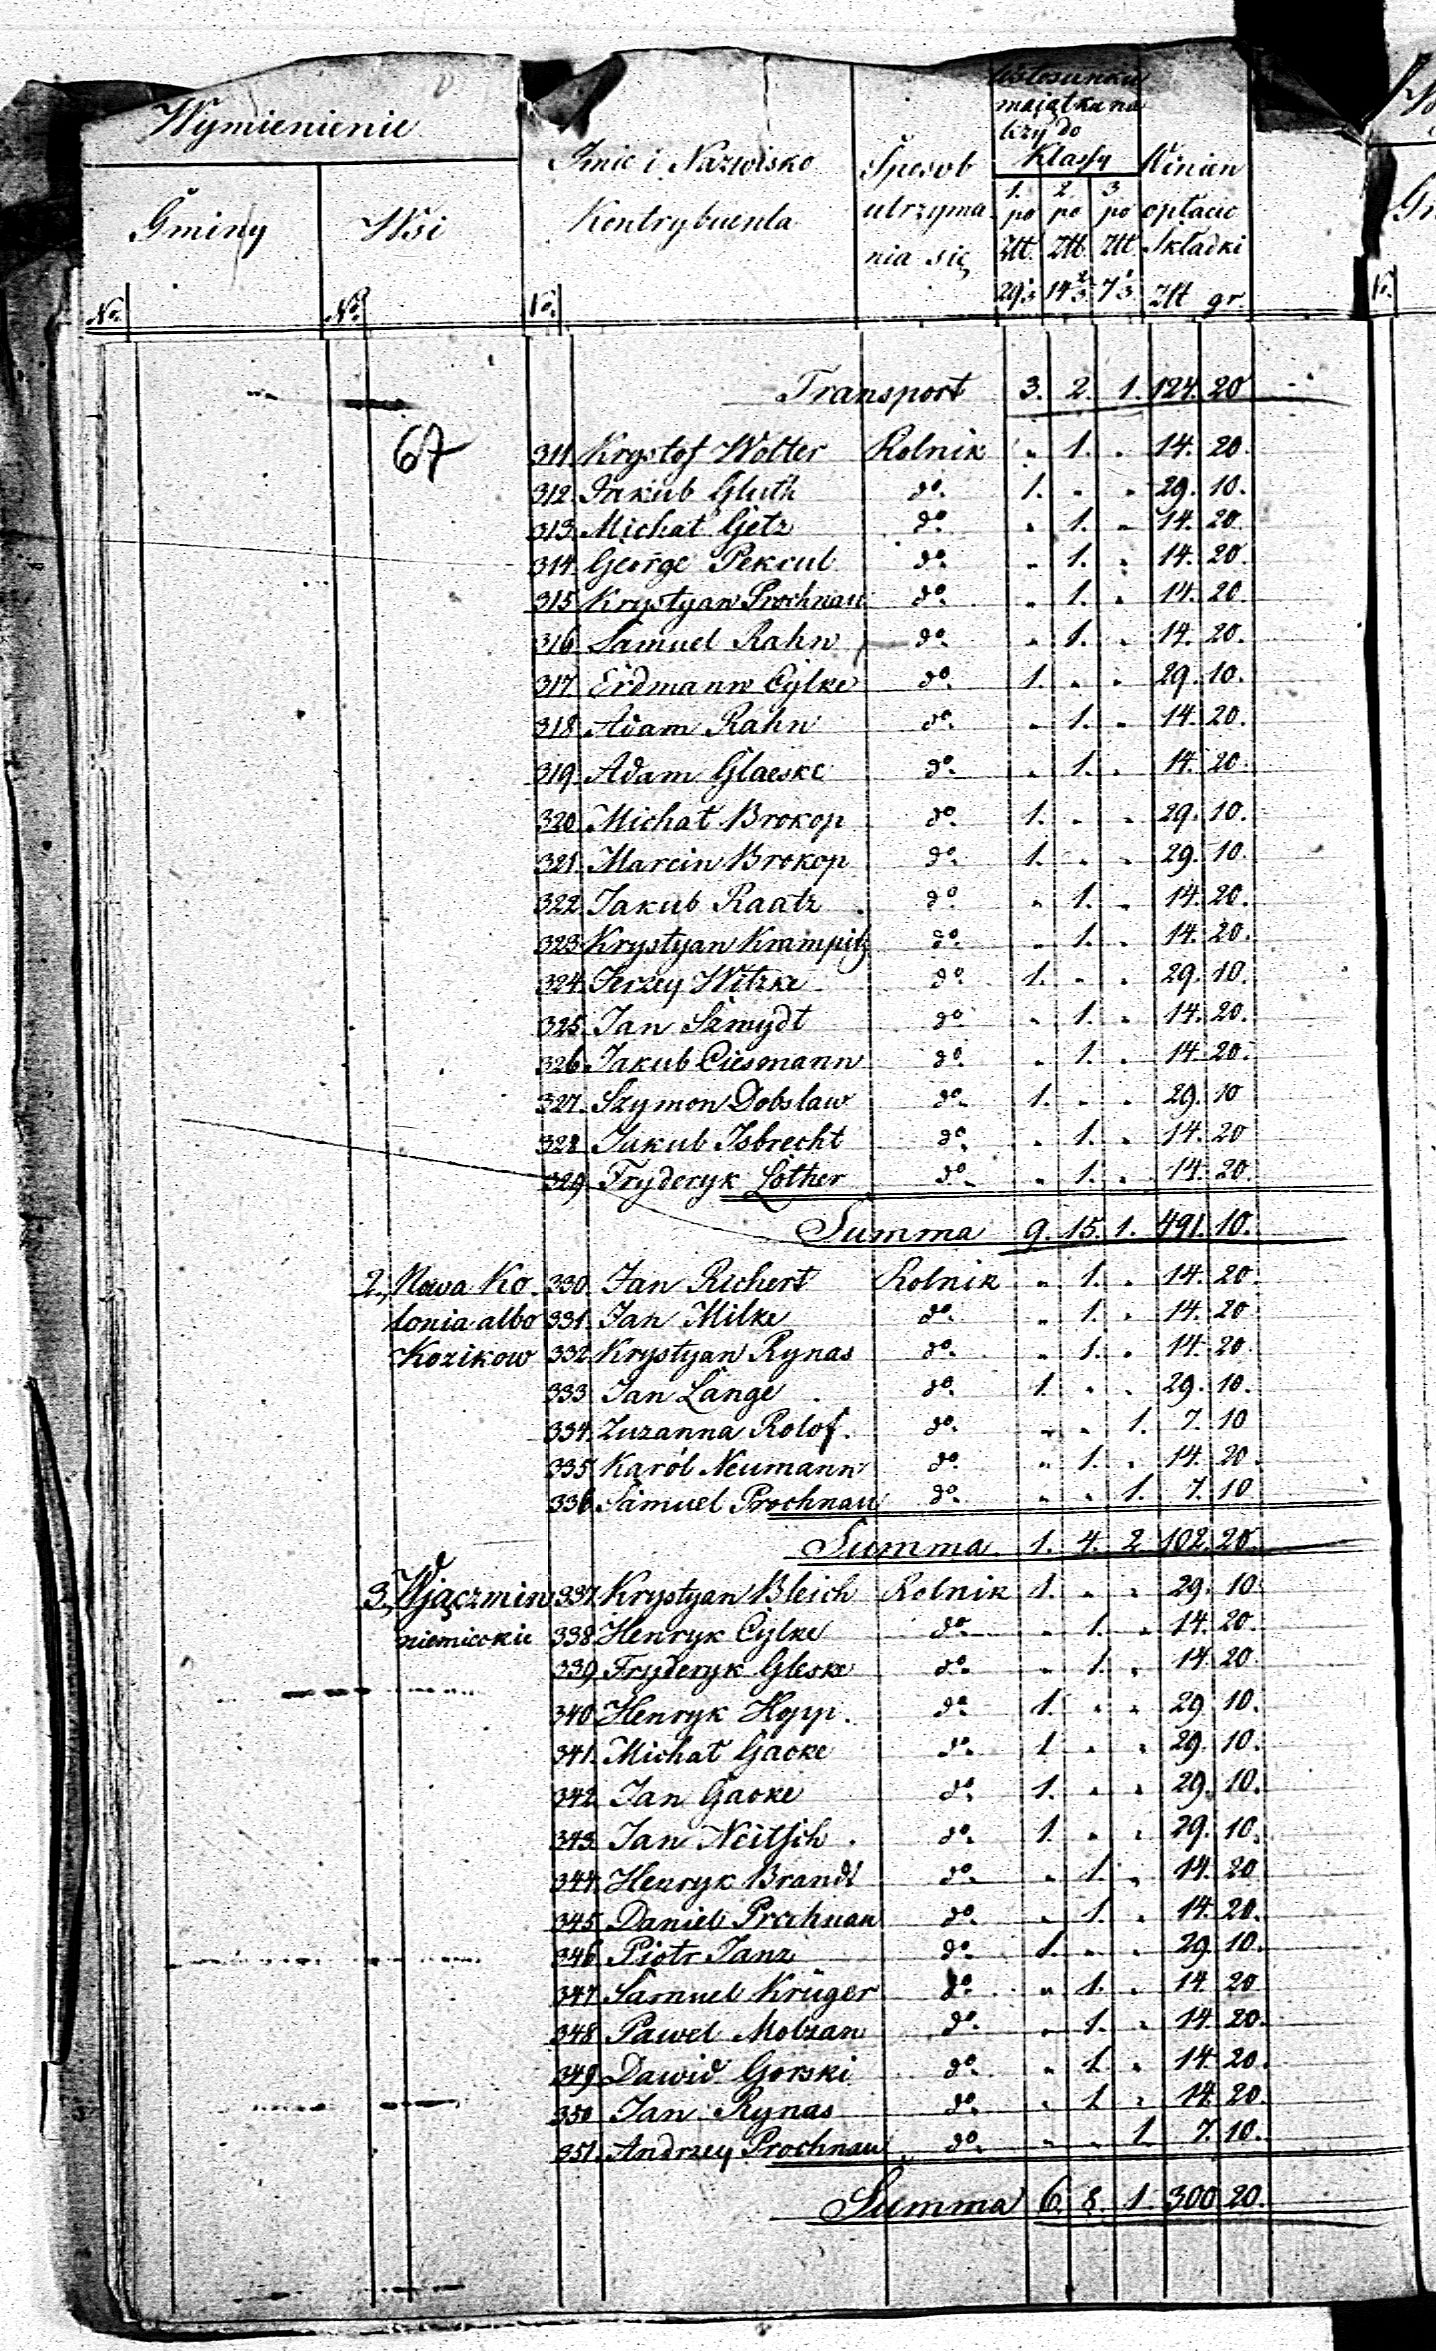 Wymienienie
Gminy
Wsi
Imie i Nazwisko
Kontrybuenta
Sposob
utrzyma
nia się
W stosunku
maiątku na
leży do
Klassy
1. 2. 3.
po po po
Złt. Złt. Złt.
29 1/3 14 2/3 7 1/3
Winien
opłacić
Składki
Złt gr.
No. No. No.
Transport 3. 2. 1. 124. 20
67
311. Krystof Wolter Rolnik " 1. " 14. 20.
312. Jakub Gluth do. 1. " " 29. 10.
313. Michał Getz do. " 1. " 14. 20
314. George Pekrul do. " 1. " 14. 20.
315. Krystyan Prochnau do. " 1. " 14. 20
316. Samuel Rahn do. " 1. " 14. 20.
317. Erdmann Cylke do. 1. " " 29. 10.
318. Adam Rahn do. " 1. " 14. 20.
319. Adam Glaeske do. " 1. " 14. 20.
320. Michał Brokop do. 1. " " 29. 10.
321. Marcin Brokop do. 1. " " 29. 10.
322. Jakub Raatz do. " 1. " 14. 20.
323. Krystyan Krampitz do. " 1. " 14. 20.
324. Jerzy Witzke do. 1. " " 29. 10.
325. Jan Szmydt do. " 1. " 14. 20.
326. Jakub Ciesmann do. " 1. " 14. 20.
327. Szymon Dobslaw do. 1. " " 29. 10
328. Jakub Isbrecht do. " 1. " 14. 20
329. Fryderyk Lother do. " 1. " 14. 20.
Summa 9. 15. 1. 491. 10.
2, Nowa Ko 330. Jan Richert Rolnik " 1. " 14. 20.
lonia albo 331. Jan Milke do. " 1. " 14. 20
Kozikow 332. Krystyan Rynas do. " 1. " 14. 20.
333. Jan Lange do. 1. " " 29. 10.
334. Zuzanna Rolof. do. " " 1. 7. 10
335. Karól Neumann do. " 1. " 14. 20.
336. Samuel Prochnau do. " " 1. 7. 10
Summa 1. 4. 2. 102. 20.
3, Wjączmin 337. Krystyan Bleich Rolnik 1. " " 29. 10
niemieckie 338. Henryk Cylke do. " 1. " 14. 20.
339. Fryderyk Gleske do. " 1. " 14. 20
340. Henryk Hopp. do. 1. " " 29. 10.
341. Michał Gacke do. 1 " " 29. 10.
342. Jan Gacke do. 1. " " 29. 10.
343. Jan Neitsch. do. 1. " " 29. 10.
344. Henryk Brandt do. " 1. " 14. 20
345. Daniel Prochnau do. " 1. " 14. 20.
346. Piotr Janz do. 1. " " 29. 10.
347. Samuel Krüger do. " 1. " 14. 20
348. Paweł Molzan do. " 1. " 14. 20.
349. Dawid Gorski do. " 1. " 14. 20.
350. Jan Rynas do. " 1 " 14. 20.
351. Andrzey Prochnau do. " " 1 7. 10.
Summa 6. 8. 1. 300 20.